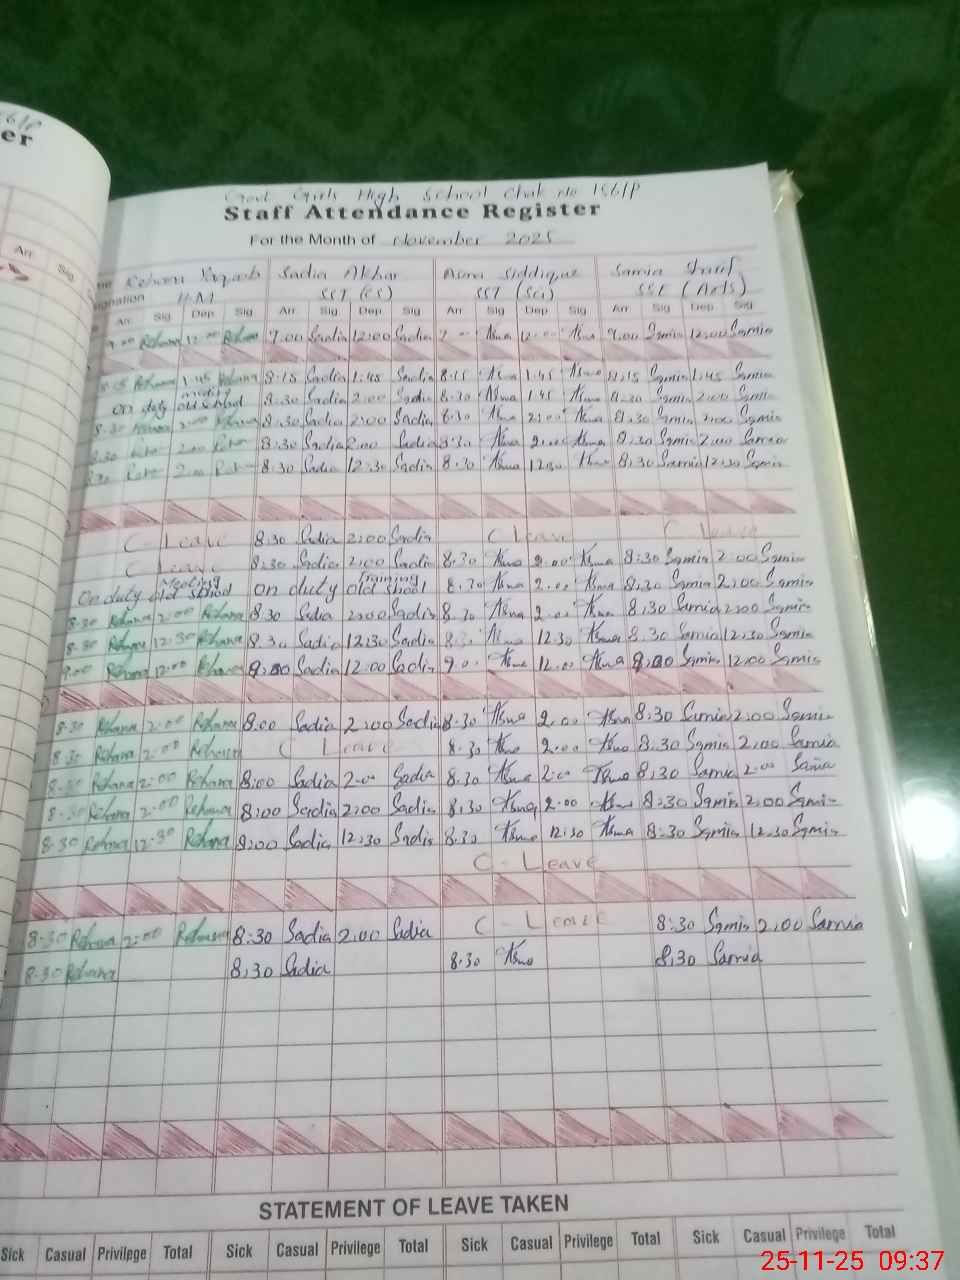 er
Arr
Sig
Govt Girls High School Chak No 156/P
Staff Attendance Register
For the Month of November 2025
Sadia Akhar Asma Siddique Samia Sharif
ignation H.M SST (CS) SST (Sci) SSE (Arts)
Arr Sig Dep Sig Arr Sig Dep Sig Arr Sig Dep Sig Arr Sig Dep Sig
9.00 Rehana 12.00 Rehana 9.00 Sadia 12:00 Sadia Asma 12.00 Asma 9.00 Samia 12.00 Samia
8.15 Rehana 1.45 Rehana 8.15 Sadia 1.45 Sadia 8.15 Asma 1.45 Asma Samia 1.45 Samia
on duty meeting old school 8.30 Sadia 2.00 Sadia 8.30 Asma 1.45 Asma 8.30 Samia 2.00 Samia
8.30 Rehana 2.00 Rehana 8.30 Sadia 2.00 Sadia 8.30 Asma 2.00 Asma 8.30 Samia 2.00 Samia
8.30 2.00 8.30 Sadia 2.00 Sadia 8.30 Asma 2.00 Asma 8.30 Samia 2.00 Samia
8.30 2.00 8.30 Sadia 12.30 Sadia 8.30 Asma 12.30 Asma 8.30 Samia 12.30 Samia
C-Leave 8.30 Sadia 2.00 Sadia C Leave C Leave
C Leave 8.30 Sadia 2.00 Sadia 8.30 Asma 2.00 Asma 8.30 Samia 2.00 Samia
On duty Meeting old school on duty Training old shool 8.30 Asma 2.00 Asma 8.30 Samia 2.00 Samia
8.30 Rehana 2.00 Rehana 8.30 Sadia 2.00 Sadia 8.30 Asma 2.00 Asma 8.30 Samia 2.00 Samia
8.30 Rehana 12.30 Rehana 8.30 Sadia 12.30 Sadia 8.30 Asma 12.30 Asma 8.30 Samia 12.30 Samia
9.00 Rehana 12.00 Rehana 9.00 Sadia 12.00 Sadia 9.00 Asma 12.00 Asma 9.00 Samia 12.00 Samia
8.30 Rehana 2.00 Rehana 8.00 Sadia 2.00 Sadia 8.30 Asma 2.00 Asma 8.30 Samia 2.00 Samia
8.30 Rehana 2.00 Rehana C Leave 8.30 Asma 2.00 Asma 8.30 Samia 2.00 Samia
8.30 Rehana 2.00 Rehana 8.00 Sadia 2.00 Sadia 8.30 Asma 2.00 Asma 8.30 Samia 2.00 Samia
8.30 Rehana 2.00 Rehana 8.00 Sadia 2.00 Sadia 8.30 Asma 2.00 Asma 8.30 Samia 2.00 Samia
8.30 Rehana 12.30 Rehana 8.00 Sadia 12.30 Sadia 8.30 Asma 12.30 Asma 8.30 Samia 12.30 Samia
C-Leave
8.30 Rehana 2.00 Rehana 8.30 Sadia 2.00 Sadia C-Leave 8.30 Samia 2.00 Samia
8.30 Rehana 8.30 Sadia 8.30 Asma 8.30 Samia
STATEMENT OF LEAVE TAKEN
Sick Casual Privilege Total Sick Casual Privilege Total Sick Casual Privilege Total Sick Casual Privilege Total
25-11-25 09:37